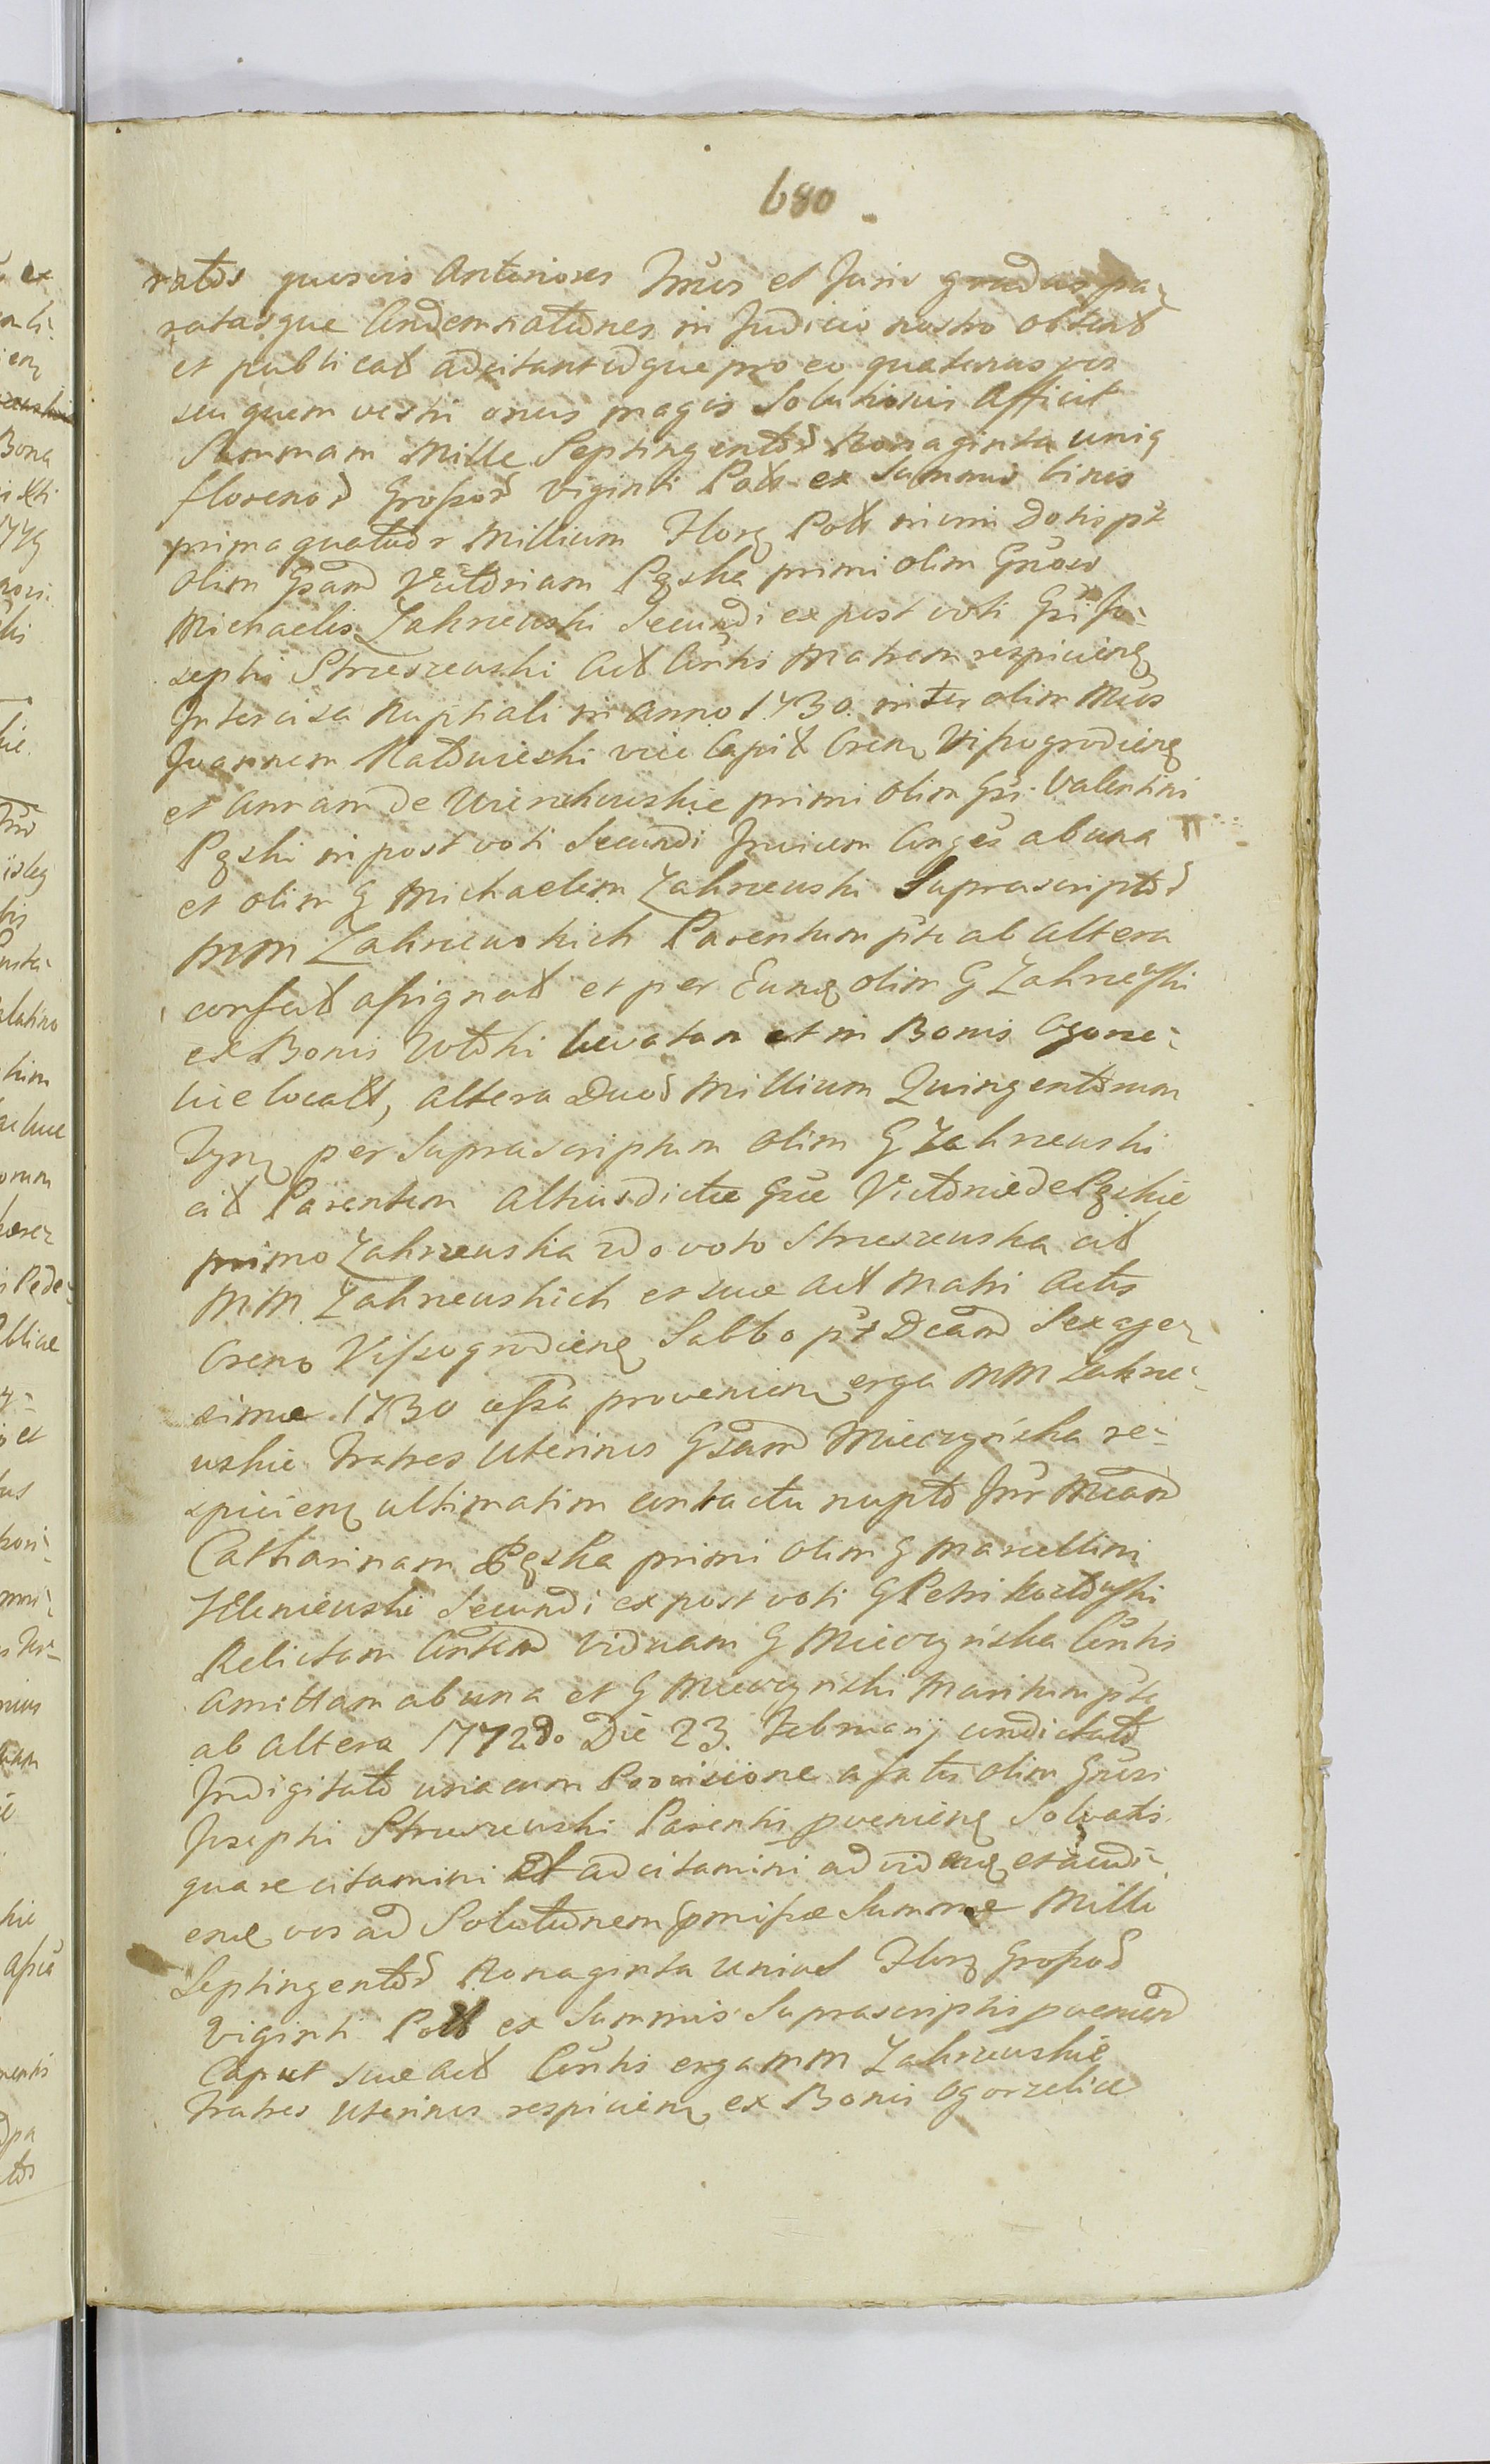 680
ratos quosvis Anteriores Jrius et Juris gradus pa-
ratasque Condemnationes in Judicio nostro obtent
et publicat adcitant idque pro eo quatenus vos
seu quem vestri onus magis Solutionis Afficit
Summam Mille Septingentor Nonaginta unig
florenor Grossor Viginti Poll ex Summis binis
prima quatuor Millium Flor Poll nieimi Dotis pr
Olim Gsam Victoriam Pęska primi olim Gnosi
Michaelis Zakrzewski Secundi ex post voti Gsi Jo-
sephi Strzeszewski Act Contis Matrem respicien
Intercisa Nuptiali in Anno 1730. inter olim Mcos
Joannem Natowieski vice Capit Cren Vissogrodien
et Annam de Wierchuskie primi olim Gsi Valentini
Pęski in post voti Secundi Invicem Conges ab una
et olim G Michaelem Zakrzewski Suprascriptor
MM Zakrzewskich Parentum pte ab Altera
confect assignat et per Eunq olim G Zakrzewski
ex Bonis Wolski levatan et in Bonis Ogorze-
lice locatt, Altera Duor Millium Quingentorum
Tyn per Suprascriptum Olim G Zakrzewski
cit Parentem Altius dictæ Gsæ Victoriæ de Pęskie
primo Zakrzewska 2do voto Strzeszewska cit
MM. Zakrzewskich et suæ Act Matri Actis
Cren Vissogrodien Sabbo pt Dcam Sexage-
simæ 1730 assa provenien erga MM Zakrze-
wskie Fratres Uterinos Gsam Mieczyńska re-
spicien ultimatim contractu nupto Inr Mcam
Catharinam Pęska primi olim G Marcellini
Secundi ex post voti G Petri
Relictam Contem Viduam G Mieczyńska Contis
Amittam ab una et G Mieczyński Maritum pte
ab Altera 1772do Die 23. Februarij condictato
Indigitato una cum Provisione a fatis olim Gnosi
Josephi Strzeszewski Parentis pvenien Solvatis
quare citamini et adcitamini ad viden et audi-
en vos ad Solutionem pmissæ Summæ Mille
Septingentor Nonaginta Unius Flor Grossor
Viginti Poll ex Summis Suprascriptis pvenien
Caput suæ Act Contis erga MM Zakrzewskie
Fratres Uterinos respicien ex Bonis Ogorzelice